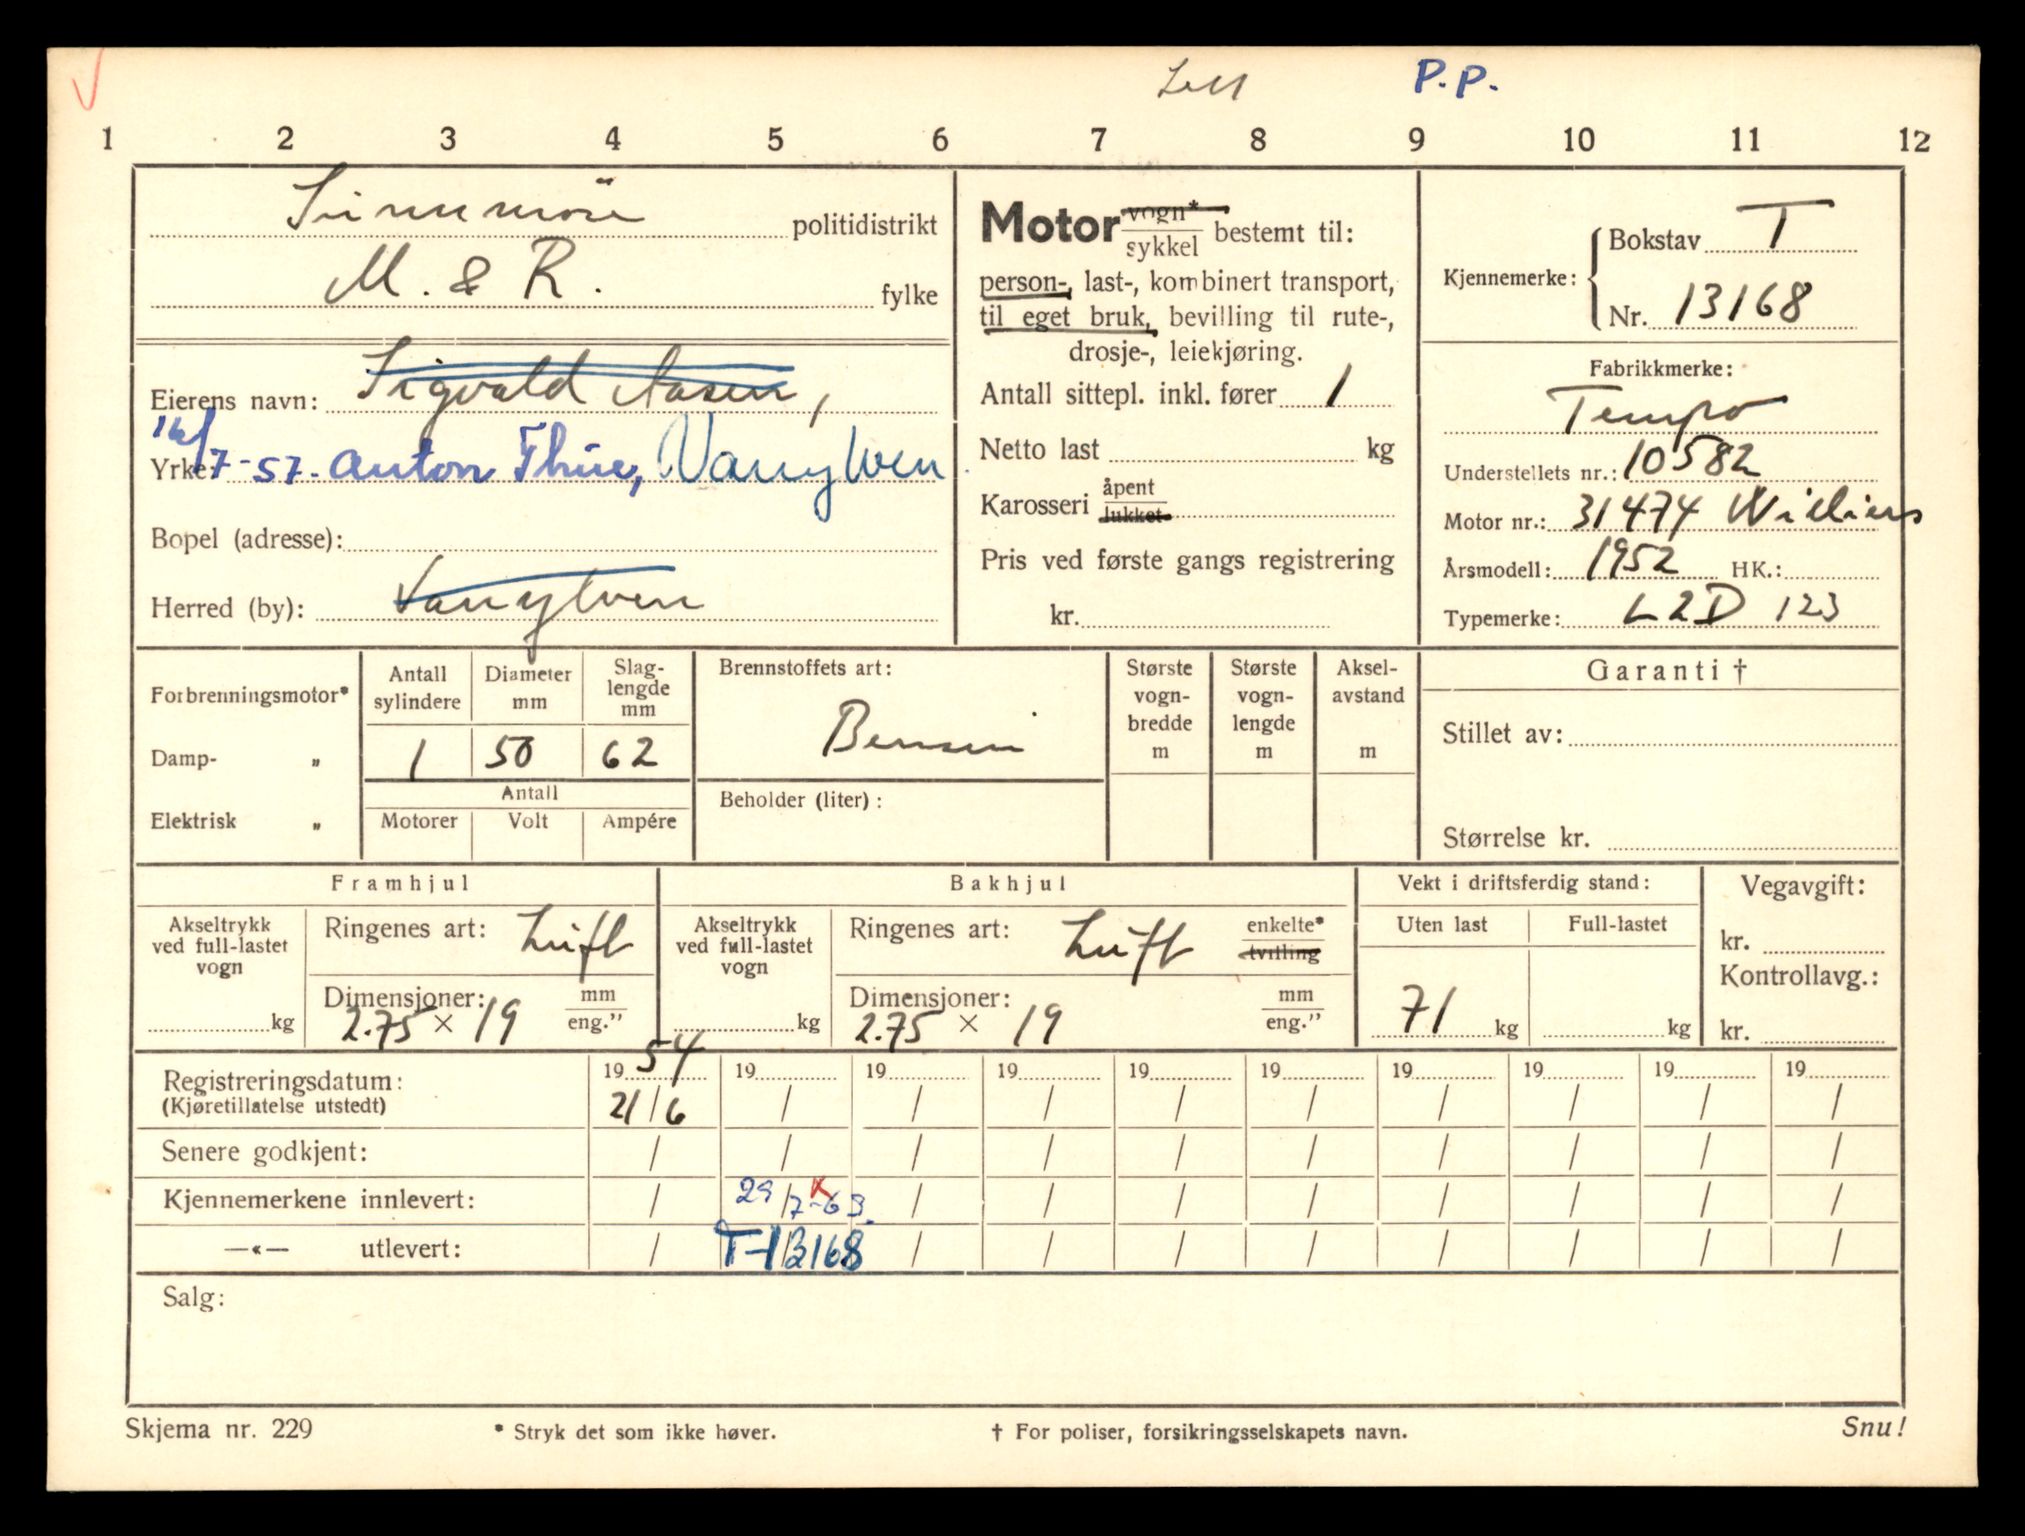 Lett P.P.
1 2 3 4 5 6 7 8 9 10 11 12
Sunnmöre politidistrikt
M. & R. fylke
Eierens navn: Sigvald Aasen,
16/7-57. Anton Thue, Vanylven
Yrke:
Bopel (adresse):
Herred (by): Vanylven
Motor vogn* / sykkel bestemt til:
person-, last-, kombinert transport,
til eget bruk, bevilling til rute-,
drosje-, leiekjøring.
Antall sittepl. inkl. fører 1
Netto last kg
Karosseri åpent / lukket
Pris ved første gangs registrering
kr.
Kjennemerke: Bokstav T
Nr. 13168
Fabrikkmerke:
Tempo
Understellets nr.: 10582
Motor nr.: 31474 Williers
Årsmodell: 1952 HK.:
Typemerke: L2D 123
Forbrenningsmotor*
Damp- "
Elektrisk "
Antall sylindere Diameter mm Slag-lengde mm
1 50 62
Antall
Motorer Volt Ampére
Brennstoffets art:
Bensin
Beholder (liter):
Største vogn-bredde m
Største vogn-lengde m
Aksel-avstand m
Garanti †
Stillet av:
Størrelse kr.
Framhjul
Akseltrykk ved full-lastet vogn
kg
Ringenes art: Luft
Dimensjoner: mm / eng."
2.75 × 19
Bakhjul
Akseltrykk ved full-lastet vogn
kg
Ringenes art: Luft enkelte* / tvilling
Dimensjoner: mm / eng."
2.75 × 19
Vekt i driftsferdig stand:
Uten last Full-lastet
71 kg kg
Vegavgift:
kr.
Kontrollavg.:
kr.
Registreringsdatum: 19 54 19 19 19 19 19 19 19 19 19
(Kjøretillatelse utstedt) 21/6 / / / / / / / / /
Senere godkjent: / / / / / / / / / /
Kjennemerkene innlevert: / 29/7-63. / / / / / / / /
—«— utlevert: / T-13168 / / / / / / / /
Salg:
Skjema nr. 229 * Stryk det som ikke høver. † For poliser, forsikringsselskapets navn. Snu!